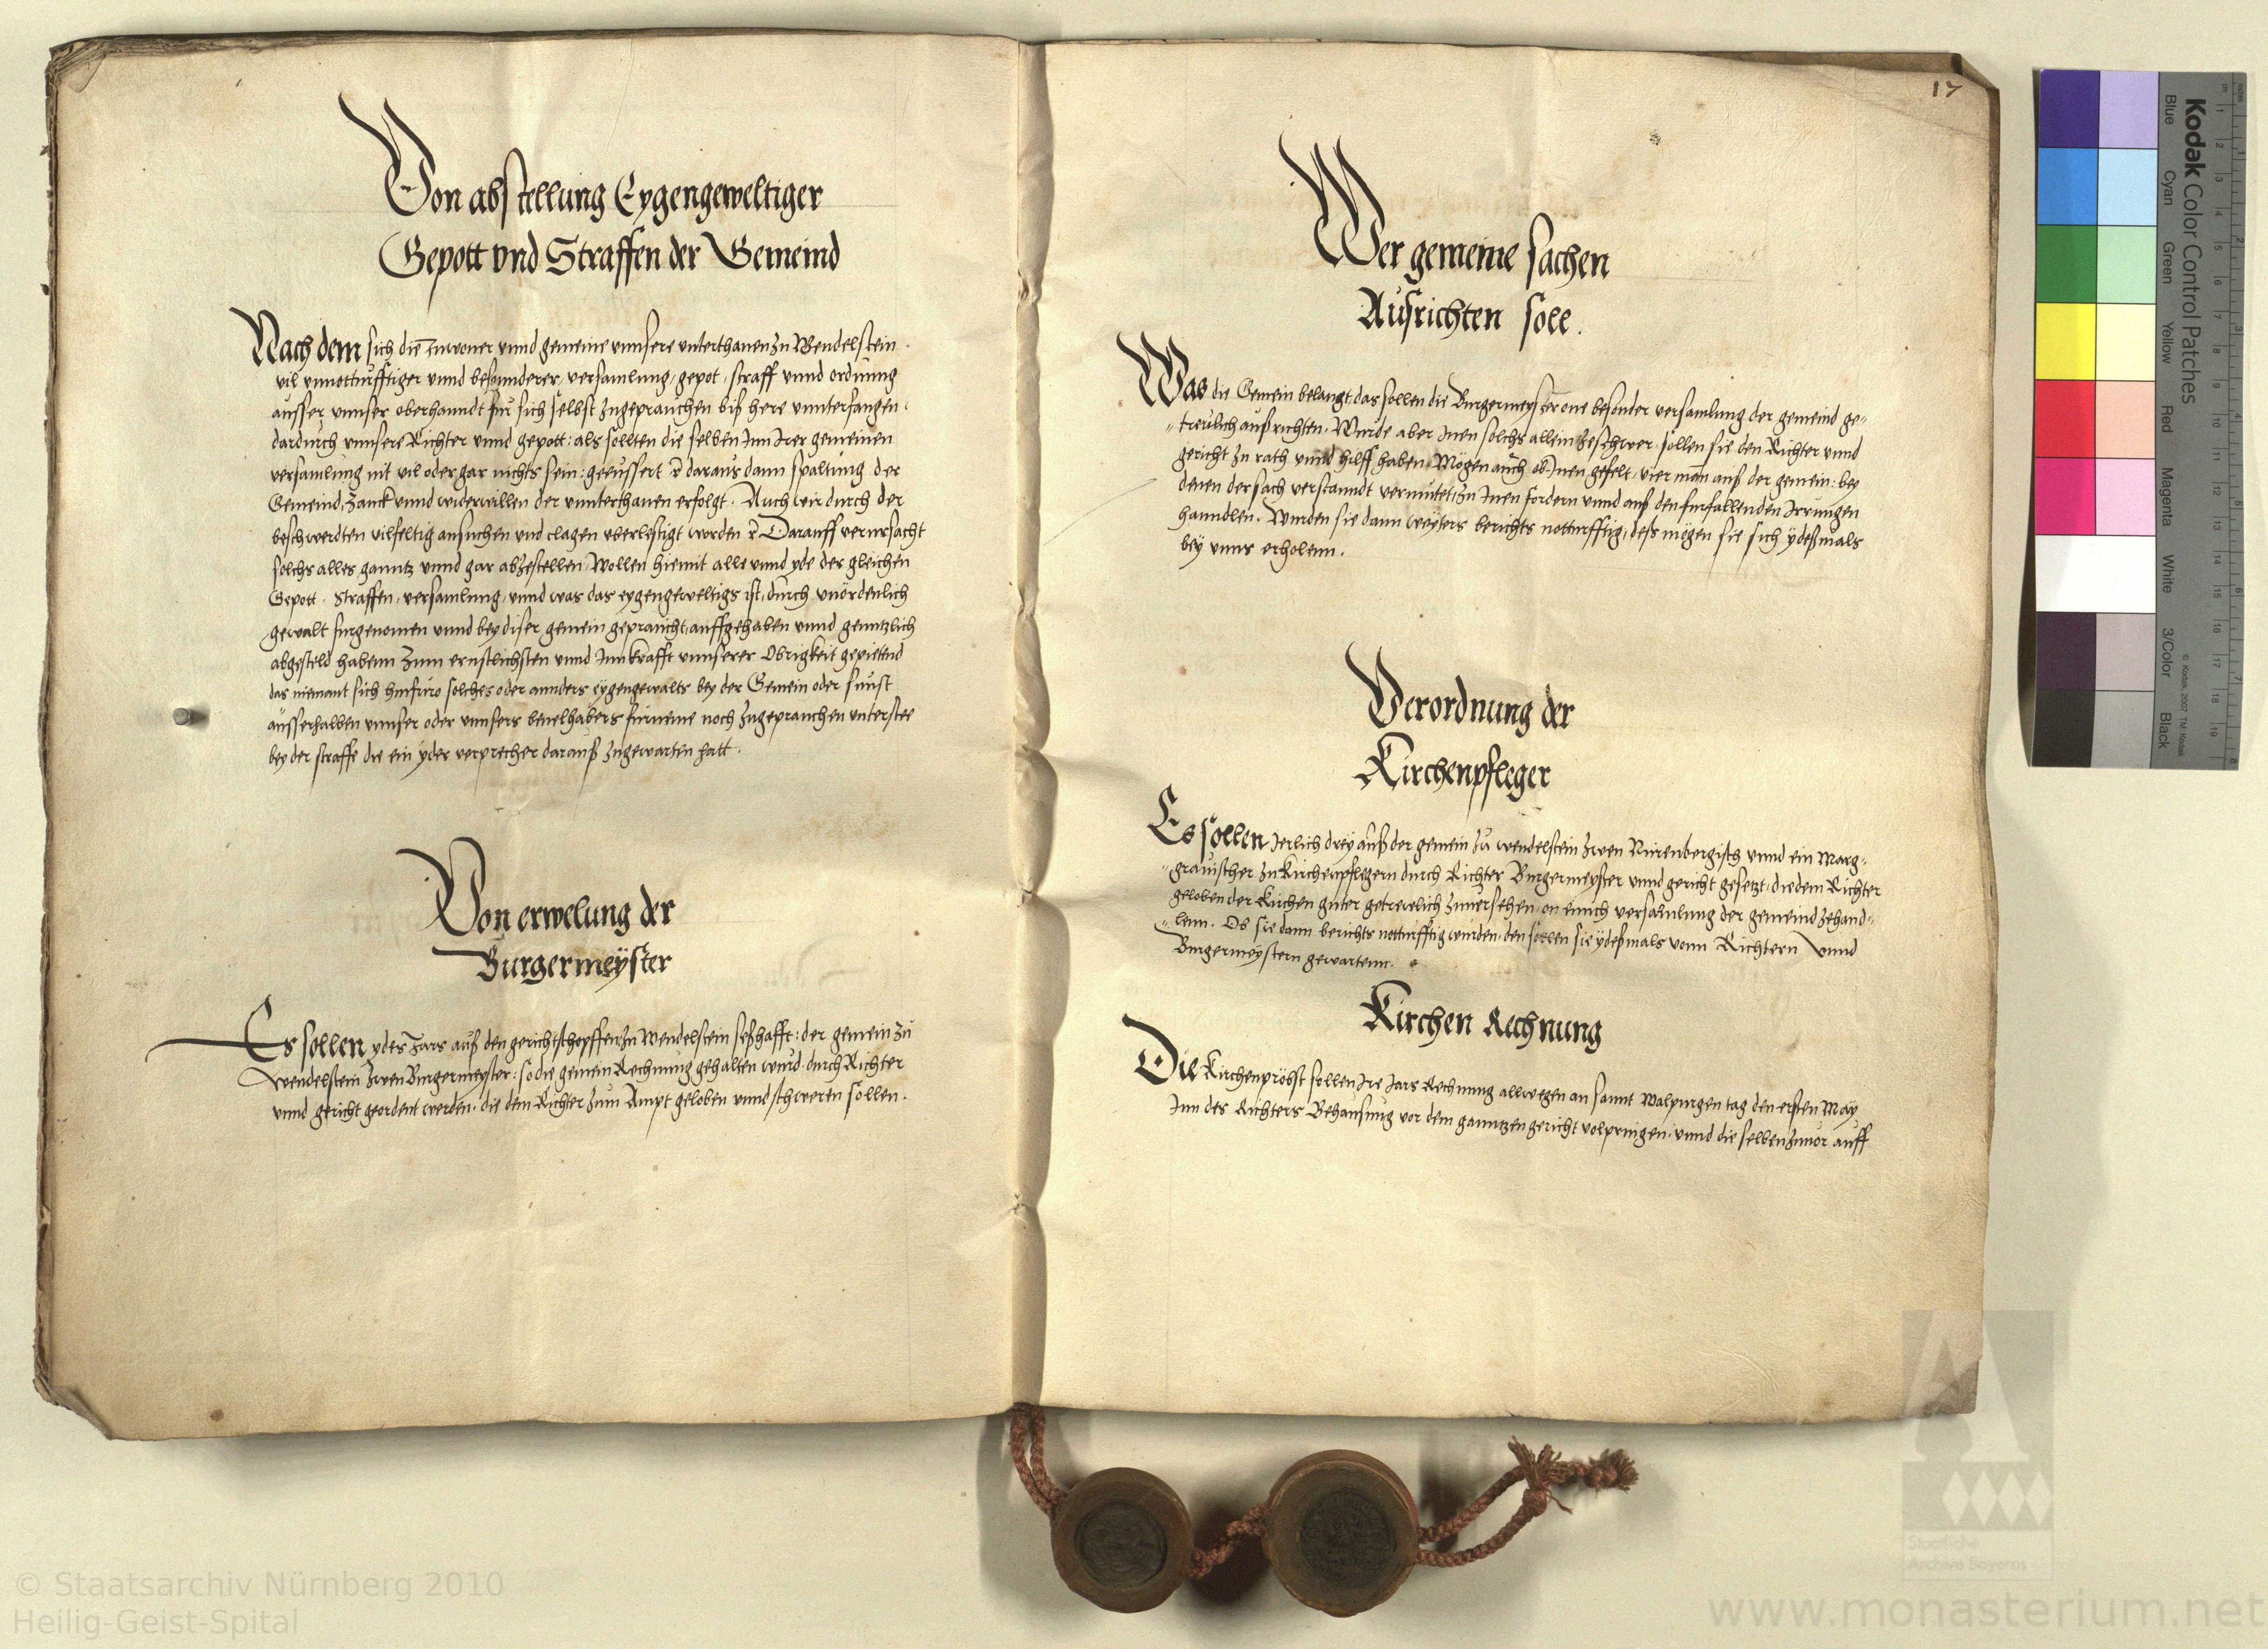 Von abstellung Eygengeweltiger
Gepott vnd Straffen der Gemeind
Nach dem sich die Inwoner vnnd gemeine vnnsere vnterthanen zu Wendelstein
vil vnnotturfftiger vnnd besonnderer versamlung, gepot, straff vnnd ordnung
ausser vnnser oberhanndt für sich selbst zugeprauchen biß here vnnterfangen
dardurch vnnsere Richter vnnd gepott: als sollten die selben Inn Irer gemeinen
versamlung nit vil oder gar nichts sein: geeussert daraus dann spaltung der
Gemeind, Zanck vnnd widerwillen der vnnterthanen erfolgt. Auch wir durch der
beschwerdten vilfeltig ansuchen vnd clagen vberlestigt worden Darauff verursacht
solchs alles ganntz vnnd gar abzestellen, Wollen hiemit alle vnnd yde der gleichen
Gepott, Straffen, versamlung, vnnd was das eygengeweltigs ist, durch vnördenlich
gewalt furgenomen vnnd bey diser gemein gepraucht, auffgehaben vnnd genntzlich
abgesteld habenn Zum ernstlichsten vnnd Inn krafft vnnserer Obrigkeit gepietend
das niemant sich hinfüro solches oder annders eygengewalts bey der Gemein oder sunst
ausserhalben vnnser oder vnnsers beuelhabers fürneme noch zugeprauchen vnterstee
bey der straffe die ein yder verprecher darauß zugewarten hatt.
Von erwelung der
Burgermeyster
Es sollen ydes Jars auß den gerichtschopffen zu Wendelstein seßhafft: der gemein zu
Wendelstein Zwen Burgermeyster: so die gemein Rechnung gehalten wurd durch Richter
vnnd gericht geordent werden, die dem Richter zum Ampt geloben vnnd schweren sollen.
17
Wer gemeine sachen
Ausrichten soll.
Was die Gemein belangt, das sollen die Burgermeyster one besonder versamlung der gemeind ge-
treulich außrichten. Wurde aber Inen solchs allein zeschwer, sollen sie den Richter vnnd
gericht zu rath vnnd hilff haben. Mögen auch ob Inen gefelt, vier man auß der gemein: bey
denen der sach verstanndt vermutet, zu Inen fordern vnnd auß den furfallenden Irrungen
hanndlen. Wurden sie dann weyters berichts notturfftig, deß mögen sie sich ydeßmals
bey vnns erholenn.
Verordnung der
Kirchenpfleger
Es sollen Jerlich drey auß der gemein zu wendelstein Zwen Nürenbergisch vnnd ein Marg-
grauischer zu Kirchenpflegern durch Richter Burgermeyster vnnd gericht gesetzt, die dem Richter
geloben der Kirchen güter getrewlich zuuersehen, on einich versamlung der gemeind zehand-
lenn. Ob sie dann berichts notturfftig wurden, den sollen sie ydeßmals vonn Richtern vnnd
Burgermeystern gewartenn.
Kirchen Rechnung
Die Kirchenpröbst sollen Ire Jars Rechnung allwegen an sannt Walpurgen tag den ersten May
Inn des Richters Behausung vor dem ganntzen gericht volpringen, vnnd die selben zuuor auff
Kodak Color Control Patches
Blue
Cyan
Green
Yellow
Red
Magenta
White
3/Color
Black
© Kodak, 2007 TM: Kodak
© Staatsarchiv Nürnberg 2010
Heilig-Geist-Spital
Staatliche
Archive Bayerns
www.monasterium.net